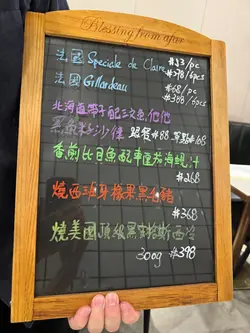 Blessing from afar
法國 Speciale de Claire #53/pc
#298/6pcs
法國 Gillardeau #68/pc
#388/6pcs
北海道帶子配三文魚他他
跟餐#88 單點#168
香煎比目魚配車厘茄海蜆汁
#268
燒西班牙橡果黑毛豬
#368
燒美國頂級黑安格斯西冷
300g #398